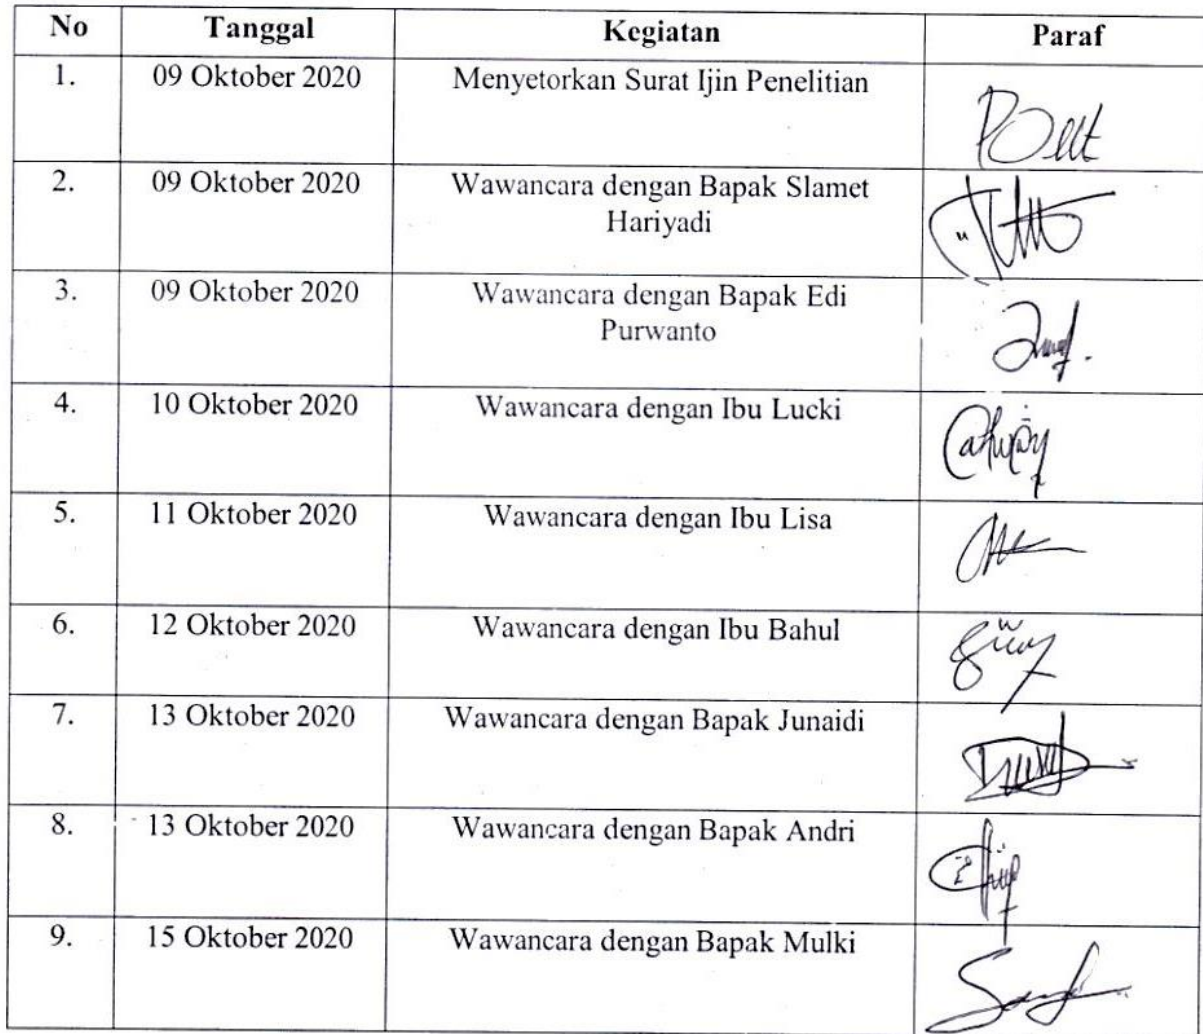 No Tanggal Kegiatan Paraf
1. 09 Oktober 2020 Menyetorkan Surat Ijin Penelitian
2. 09 Oktober 2020 Wawancara dengan Bapak Slamet
Hariyadi
3. 09 Oktober 2020 Wawancara dengan Bapak Edi
Purwanto
4. 10 Oktober 2020 Wawancara dengan Ibu Lucki
5. 11 Oktober 2020 Wawancara dengan Ibu Lisa
6. 12 Oktober 2020 Wawancara dengan Ibu Bahul
7. 13 Oktober 2020 Wawancara dengan Bapak Junaidi
8. 13 Oktober 2020 Wawancara dengan Bapak Andri
9. 15 Oktober 2020 Wawancara dengan Bapak Mulki